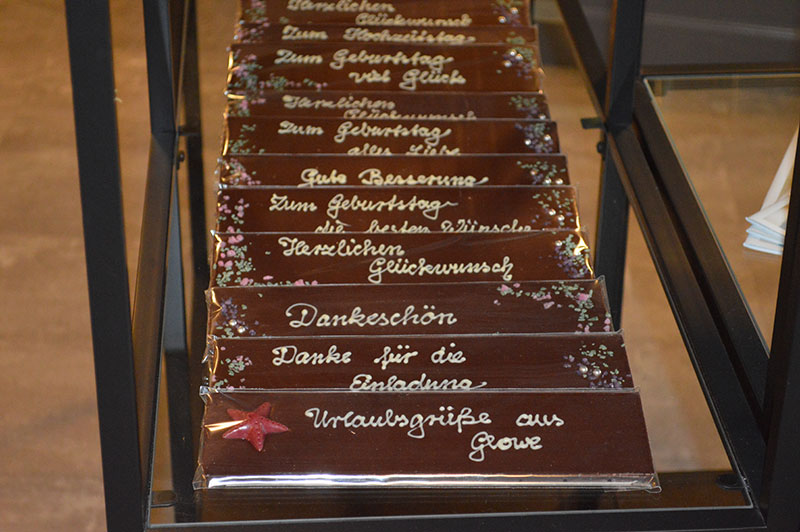 Herzlichen
Glückwunsch
Zum Hochzeitstag
Zum Geburtstag
viel Glück
Herzlichen
Glückwunsch
Zum Geburtstag
alles Liebe
Gute Besserung
Zum Geburtstag
die besten Wünsche
Herzlichen
Glückwunsch
Dankeschön
Danke für die
Einladung
Urlaubsgrüße aus
Glowe